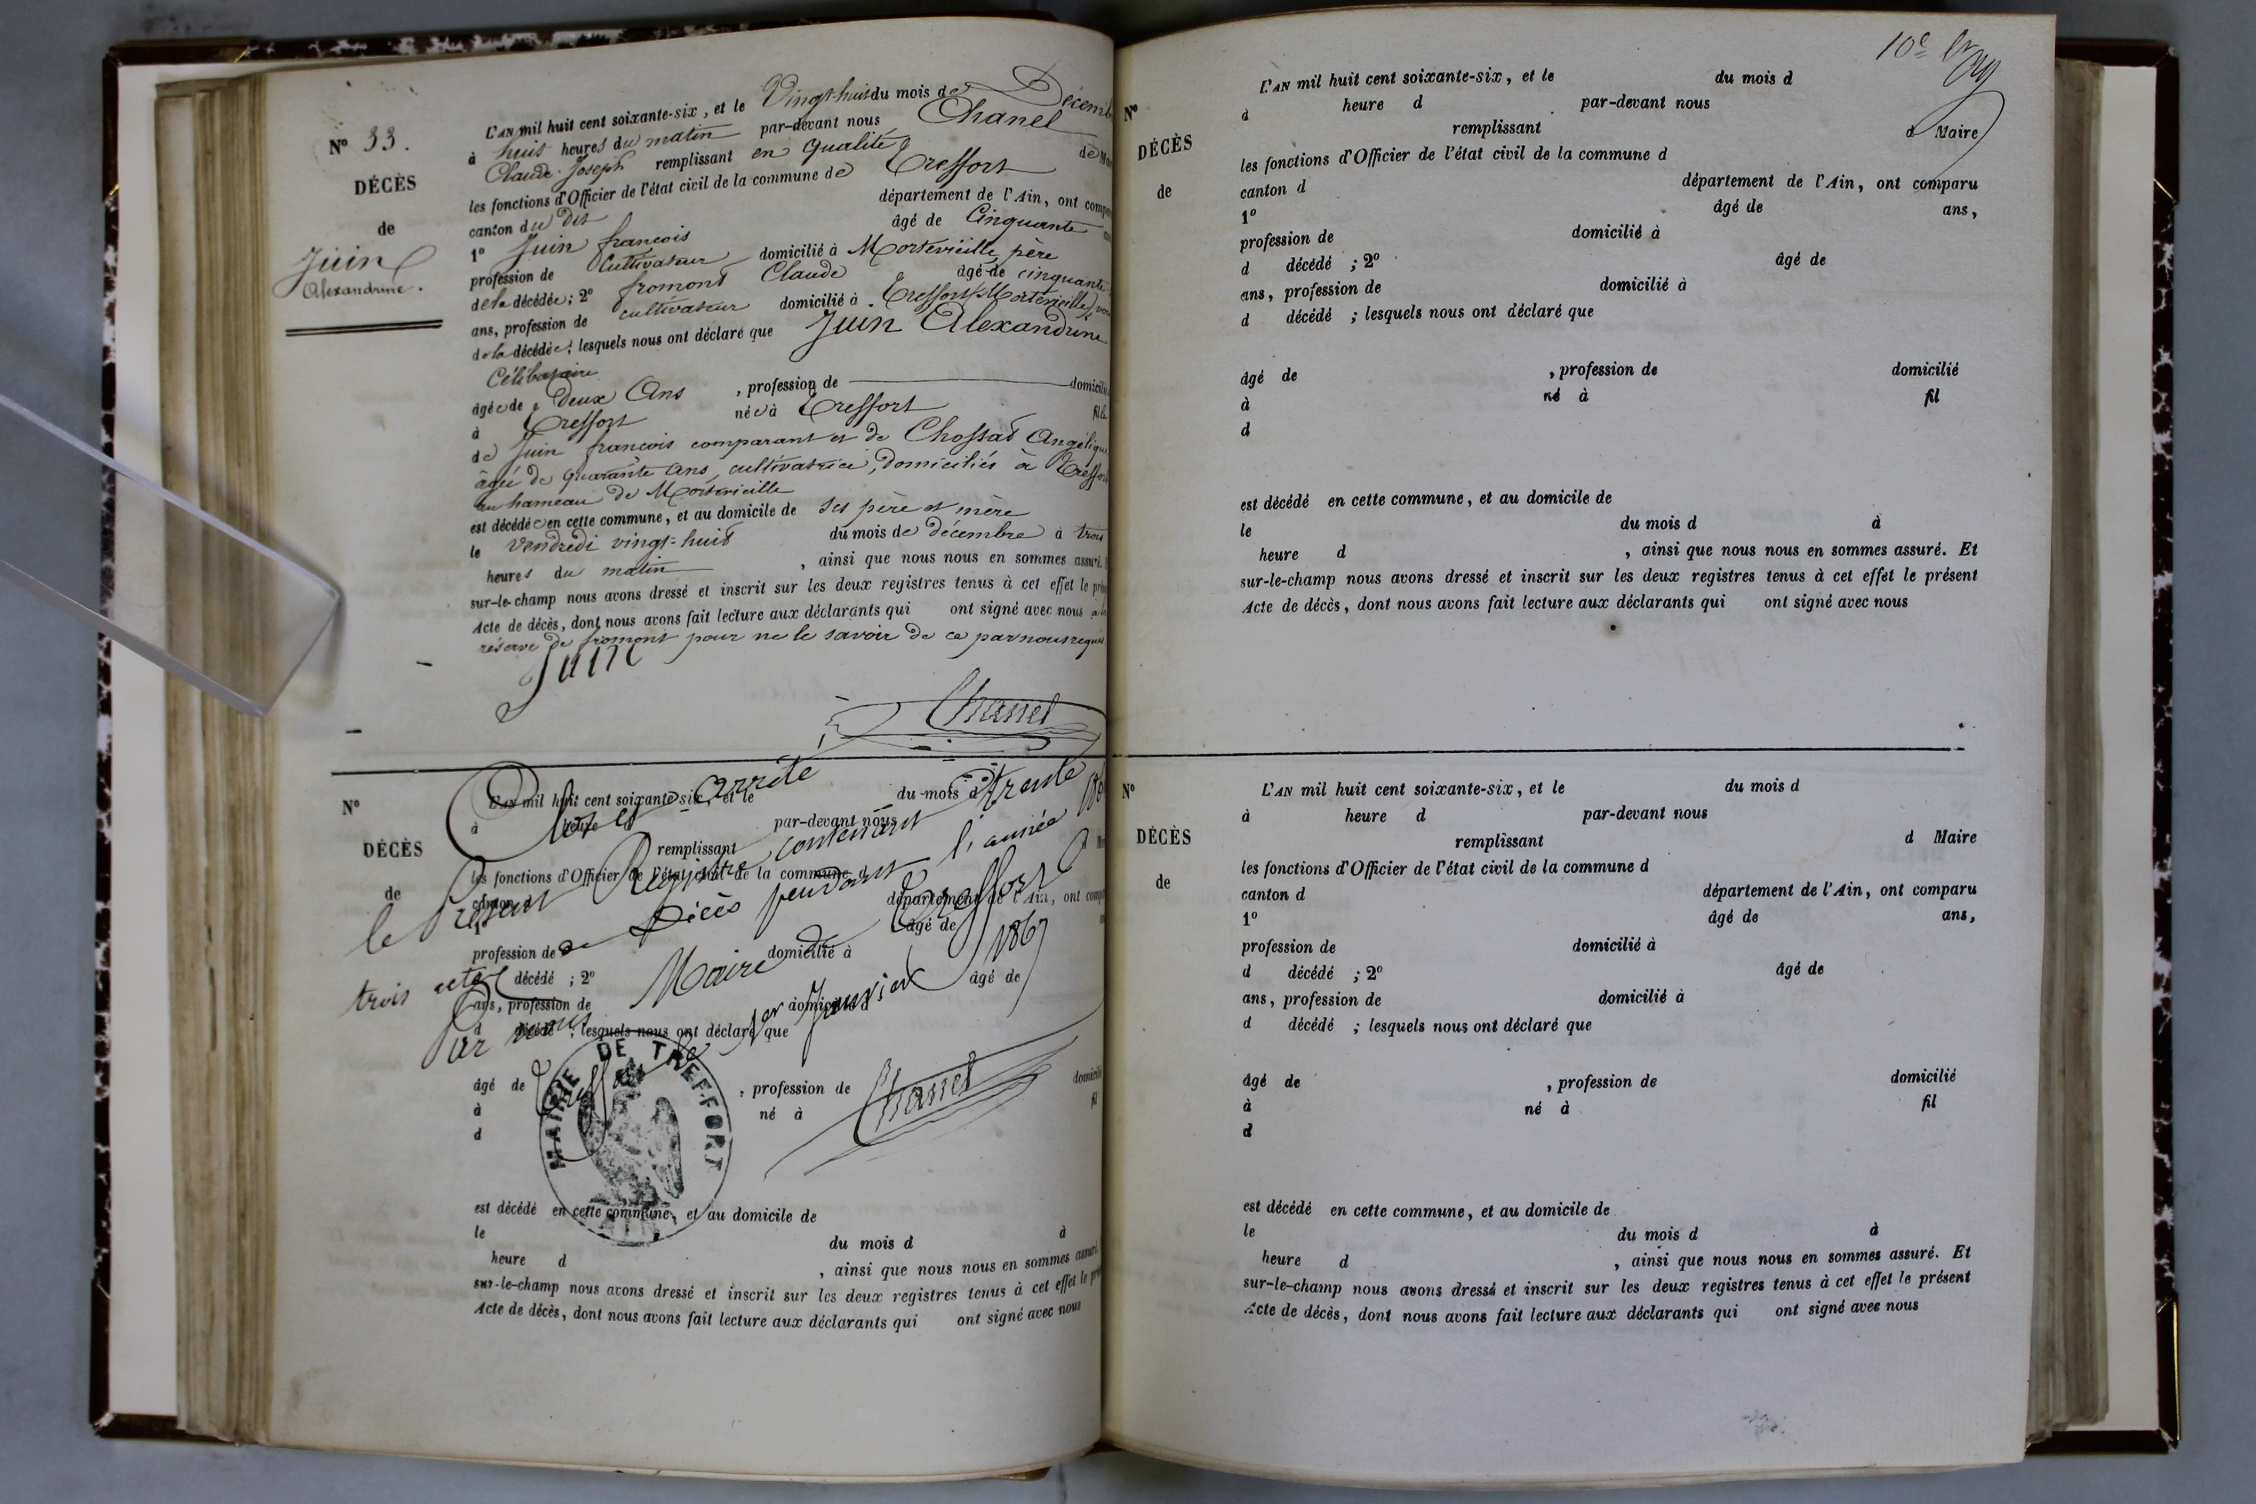 N° 33.
DÉCÈS
de
Juin
Alexandrine.
L'AN mil huit cent soixante-six, et le Vingt-huit du mois de Décemb
à huit heures du matin par-devant nous Chanel
Claude Joseph remplissant en qualité de Ma
les fonctions d'Officier de l'état civil de la commune de Treffort
canton du dit département de l'Ain, ont compa
1° Juin françois âgé de Cinquante an
profession de Cultivateur domicilié à Mortevieille, père
de la décédée; 2° fromont Claude âgé de cinquante
ans, profession de cultivateur domicilié à Treffort (Mortevieille) vois
de la décédée; lesquels nous ont déclaré que Juin Alexandrine
Célibataire
âgée de deux Ans, profession de domicilié
à Treffort née à Treffort fille
de Juin françois comparant et de Chossat Angélique
âgée de quarante ans, cultivatrice, domiciliés à Treffort
au hameau de Mortevieille
est décédée en cette commune, et au domicile de ses père et mère
le vendredi vingt-huit du mois de décembre à trois
heures du matin, ainsi que nous nous en sommes assuré.
sur-le-champ nous avons dressé et inscrit sur les deux registres tenus à cet effet le prés
Acte de décès, dont nous avons fait lecture aux déclarants qui ont signé avec nous a la
réserve de fromont pour ne le savoir de ce par nous requis
Juin
Chanel
N°
DÉCÈS
de
L'AN mil huit cent soixante-six, et le du mois d
à heure d par-devant nous
remplissant d Ma
les fonctions d'Officier de l'état civil de la commune d
canton d département de l'Ain, ont comp
1° âgé de
profession de domicilié à
d décédé ; 2° âgé de
ans, profession de domicilié à
d décédé ; lesquels nous ont déclaré que
âgé de , profession de domicilié
à né à fil
d
est décédé en cette commune, et au domicile de
le du mois d à
heure d , ainsi que nous nous en sommes assuré.
sur-le-champ nous avons dressé et inscrit sur les deux registres tenus à cet effet le pré
Acte de décès, dont nous avons fait lecture aux déclarants qui ont signé avec nous
Clos et arrêté
le Présent Registre contenant trente
trois actes de Décès pendant l'année 186
Par nous Maire de Treffort
Treffort le 1er Janvier 1867
Chanel
MAIRIE DE TREFFORT
10e
N°
DÉCÈS
de
L'AN mil huit cent soixante-six, et le du mois d
à heure d par-devant nous
remplissant d Maire
les fonctions d'Officier de l'état civil de la commune d
canton d département de l'Ain, ont comparu
1° âgé de ans,
profession de domicilié à
d décédé ; 2° âgé de
ans, profession de domicilié à
d décédé ; lesquels nous ont déclaré que
âgé de , profession de domicilié
à né à fil
d
est décédé en cette commune, et au domicile de
le du mois d à
heure d , ainsi que nous nous en sommes assuré. Et
sur-le-champ nous avons dressé et inscrit sur les deux registres tenus à cet effet le présent
Acte de décès, dont nous avons fait lecture aux déclarants qui ont signé avec nous
N°
DÉCÈS
de
L'AN mil huit cent soixante-six, et le du mois d
à heure d par-devant nous
remplissant d Maire
les fonctions d'Officier de l'état civil de la commune d
canton d département de l'Ain, ont comparu
1° âgé de ans,
profession de domicilié à
d décédé ; 2° âgé de
ans, profession de domicilié à
d décédé ; lesquels nous ont déclaré que
âgé de , profession de domicilié
à né à fil
d
est décédé en cette commune, et au domicile de
le du mois d à
heure d , ainsi que nous nous en sommes assuré. Et
sur-le-champ nous avons dressé et inscrit sur les deux registres tenus à cet effet le présent
Acte de décès, dont nous avons fait lecture aux déclarants qui ont signé avec nous